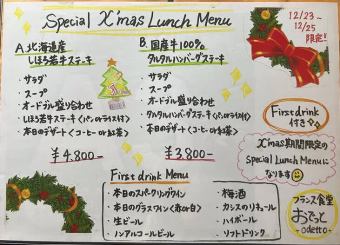 Special X'mas Lunch Menu
12/23~
12/25
限定!
A. 北海道産
しほろ若牛ステーキ
・サラダ
・スープ
・オードブル盛り合わせ
・しほろ若牛ステーキ〈パンorライス付〉
・本日のデザート〈コーヒーor紅茶〉
¥4.800-
B. 国産牛100%
タルタルハンバーグステーキ
・サラダ
・スープ
・オードブル盛り合わせ
・タルタルハンバーグステーキ〈パンorライス付〉
・本日のデザート〈コーヒーor紅茶〉
¥3.800-
First drink
付き
X'mas期間限定の
Special Lunch Menuに
なります
First drink Menu
・本日のスパークリングワイン
・本日のグラスワイン〈赤or白〉
・生ビール
・ノンアルコールビール
・梅酒
・カシスのリキュール
・ハイボール
・ソフトドリンク
フランス食堂
おでっと
-odetto-